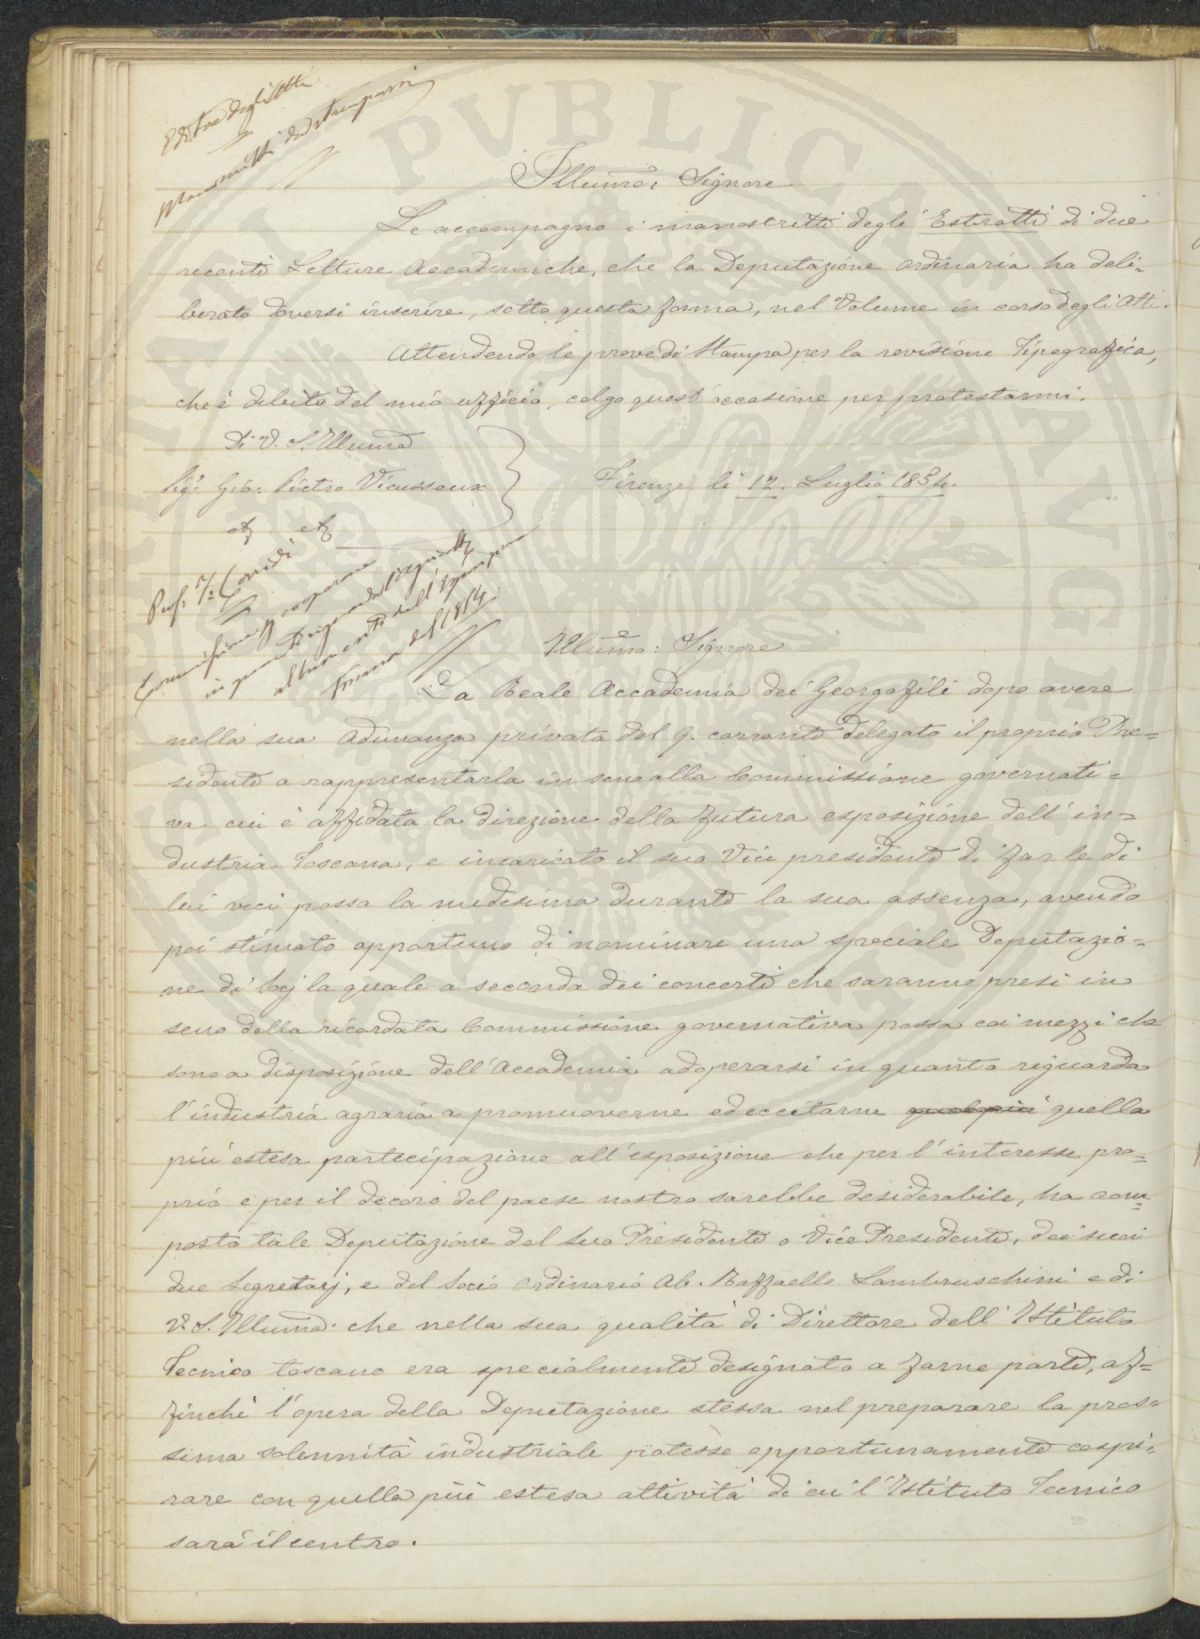 Editore degli Atti
Manoscritti da stamparsi
Illumo: Signore
Le accompagno i manoscritti degli Estratti di due
recenti Letture Accademiche, che la Deputazione ordinaria ha deli-
berato doversi inserire, sotto questa forma, nel Volume in corso degli Atti.
Attendendo le prove di Stampa per la revisione Tipografica,
che è debito del mio ufficio, colgo quest'occasione per protestarmi.
Di V. S. Illuma
Sig: Gio: Pietro Vieusseux
Firenze li 12. Luglio 1854.
Prof: F: Corridi
Commissione p cooperare
in quanto riguarda l'Agricolt
all'Esposizione
Toscana del 1854
Illumo: Signore
La Reale Accademia dei Georgofili dopo avere
nella sua adunanza privata del 9. corrante delegato il proprio Pre=
sidente a rappresentarla in seno alla Commissione governati=
va cui è affidata la direzione della futura esposizione dell'in=
dustria Toscana, e incaricato il suo Vice presidente di far le di
lui veci presso la medesima durante la sua assenza, avendo
poi stimato opportuno di nominare una speciale Deputazio=
ne di Socj la quale a seconda dei concerti che saranno presi in
seno della ricordata Commissione governativa possa coi mezzi che
sono a disposizione dell'Accademia adoperarsi in quanto riguarda
l'industria agraria a promuoverne ed eccitarne quel più quella
più estesa partecipazione all'esposizione che per l'interesse pro=
prio e per il decoro del paese nostro sarebbe desiderabile, ha com=
posto tale Deputazione del suo Presidente o Vice Presidente, dei suoi
due Segretarj, e del Socio ordinario Ab. Raffaello Lambruschini e di
V. S. Illuma. che nella sua qualità di Direttore dell'Istituto
Tecnico toscano era specialmente designato a farne parte, af=
finchè l'opera della Deputazione stessa nel preparare la pros=
sima solennità industriale potesse opportunamente cospi=
rare con quella più estesa attività di cui l'Istituto Tecnico
sarà il centro.